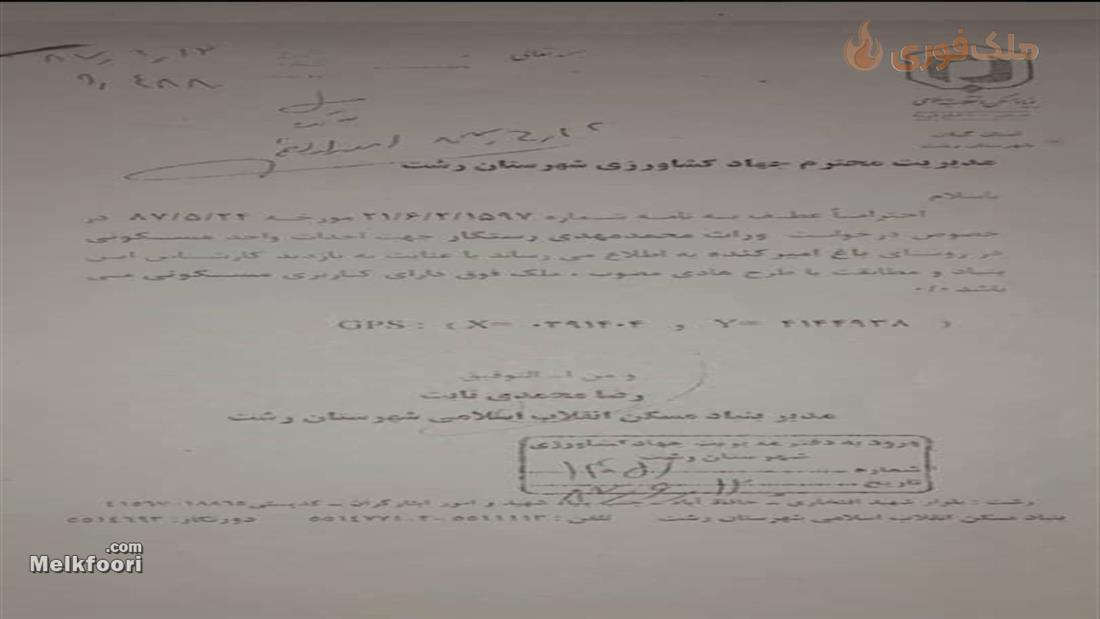 ملک فوری
بسمه تعالی
۸۷٫۶٫۱۲
۹٫۴۸۸
استان گیلان
شهرستان رشت
مدیریت محترم جهاد کشاورزی شهرستان رشت
باسلام
احتراماً عطف به نامه شماره ۲۱/۶/۲/۱۵۹۷ مورخه ۸۷/۵/۲۴ در
خصوص درخواست وراث محمدمهدی رستگار جهت احداث واحد مسکونی
در روستای باغ امیر کنده به اطلاع می رساند با عنایت به بازدید کارشناس این
بنیاد و مطابقت با طرح هادی مصوب ، ملک فوق دارای کاربری مسکونی می
باشد ۰/۰
GPS : ( X= ۰۳۹۱۴۰۴ و Y= ۴۱۴۴۹۳۸ )
و من ا... التوفیق
رضا محمدی ثابت
مدیر بنیاد مسکن انقلاب اسلامی شهرستان رشت
ورود به دفتر مدیریت جهاد کشاورزی
شهرستان رشت
شماره
تاریخ
رشت : بلوار شهید افتخاری – حافظ آباد – جنب بنیاد شهید و امور ایثارگران – کدپستی ۱۸۸۶۵-۴۱۵۶۷
بنیاد مسکن انقلاب اسلامی شهرستان رشت تلفن : ۵۵۱۱۹۱۲-۵۵۱۴۷۷۱۰۲ دورنگار : ۵۵۱۴۶۹۳
Melkfoori.com